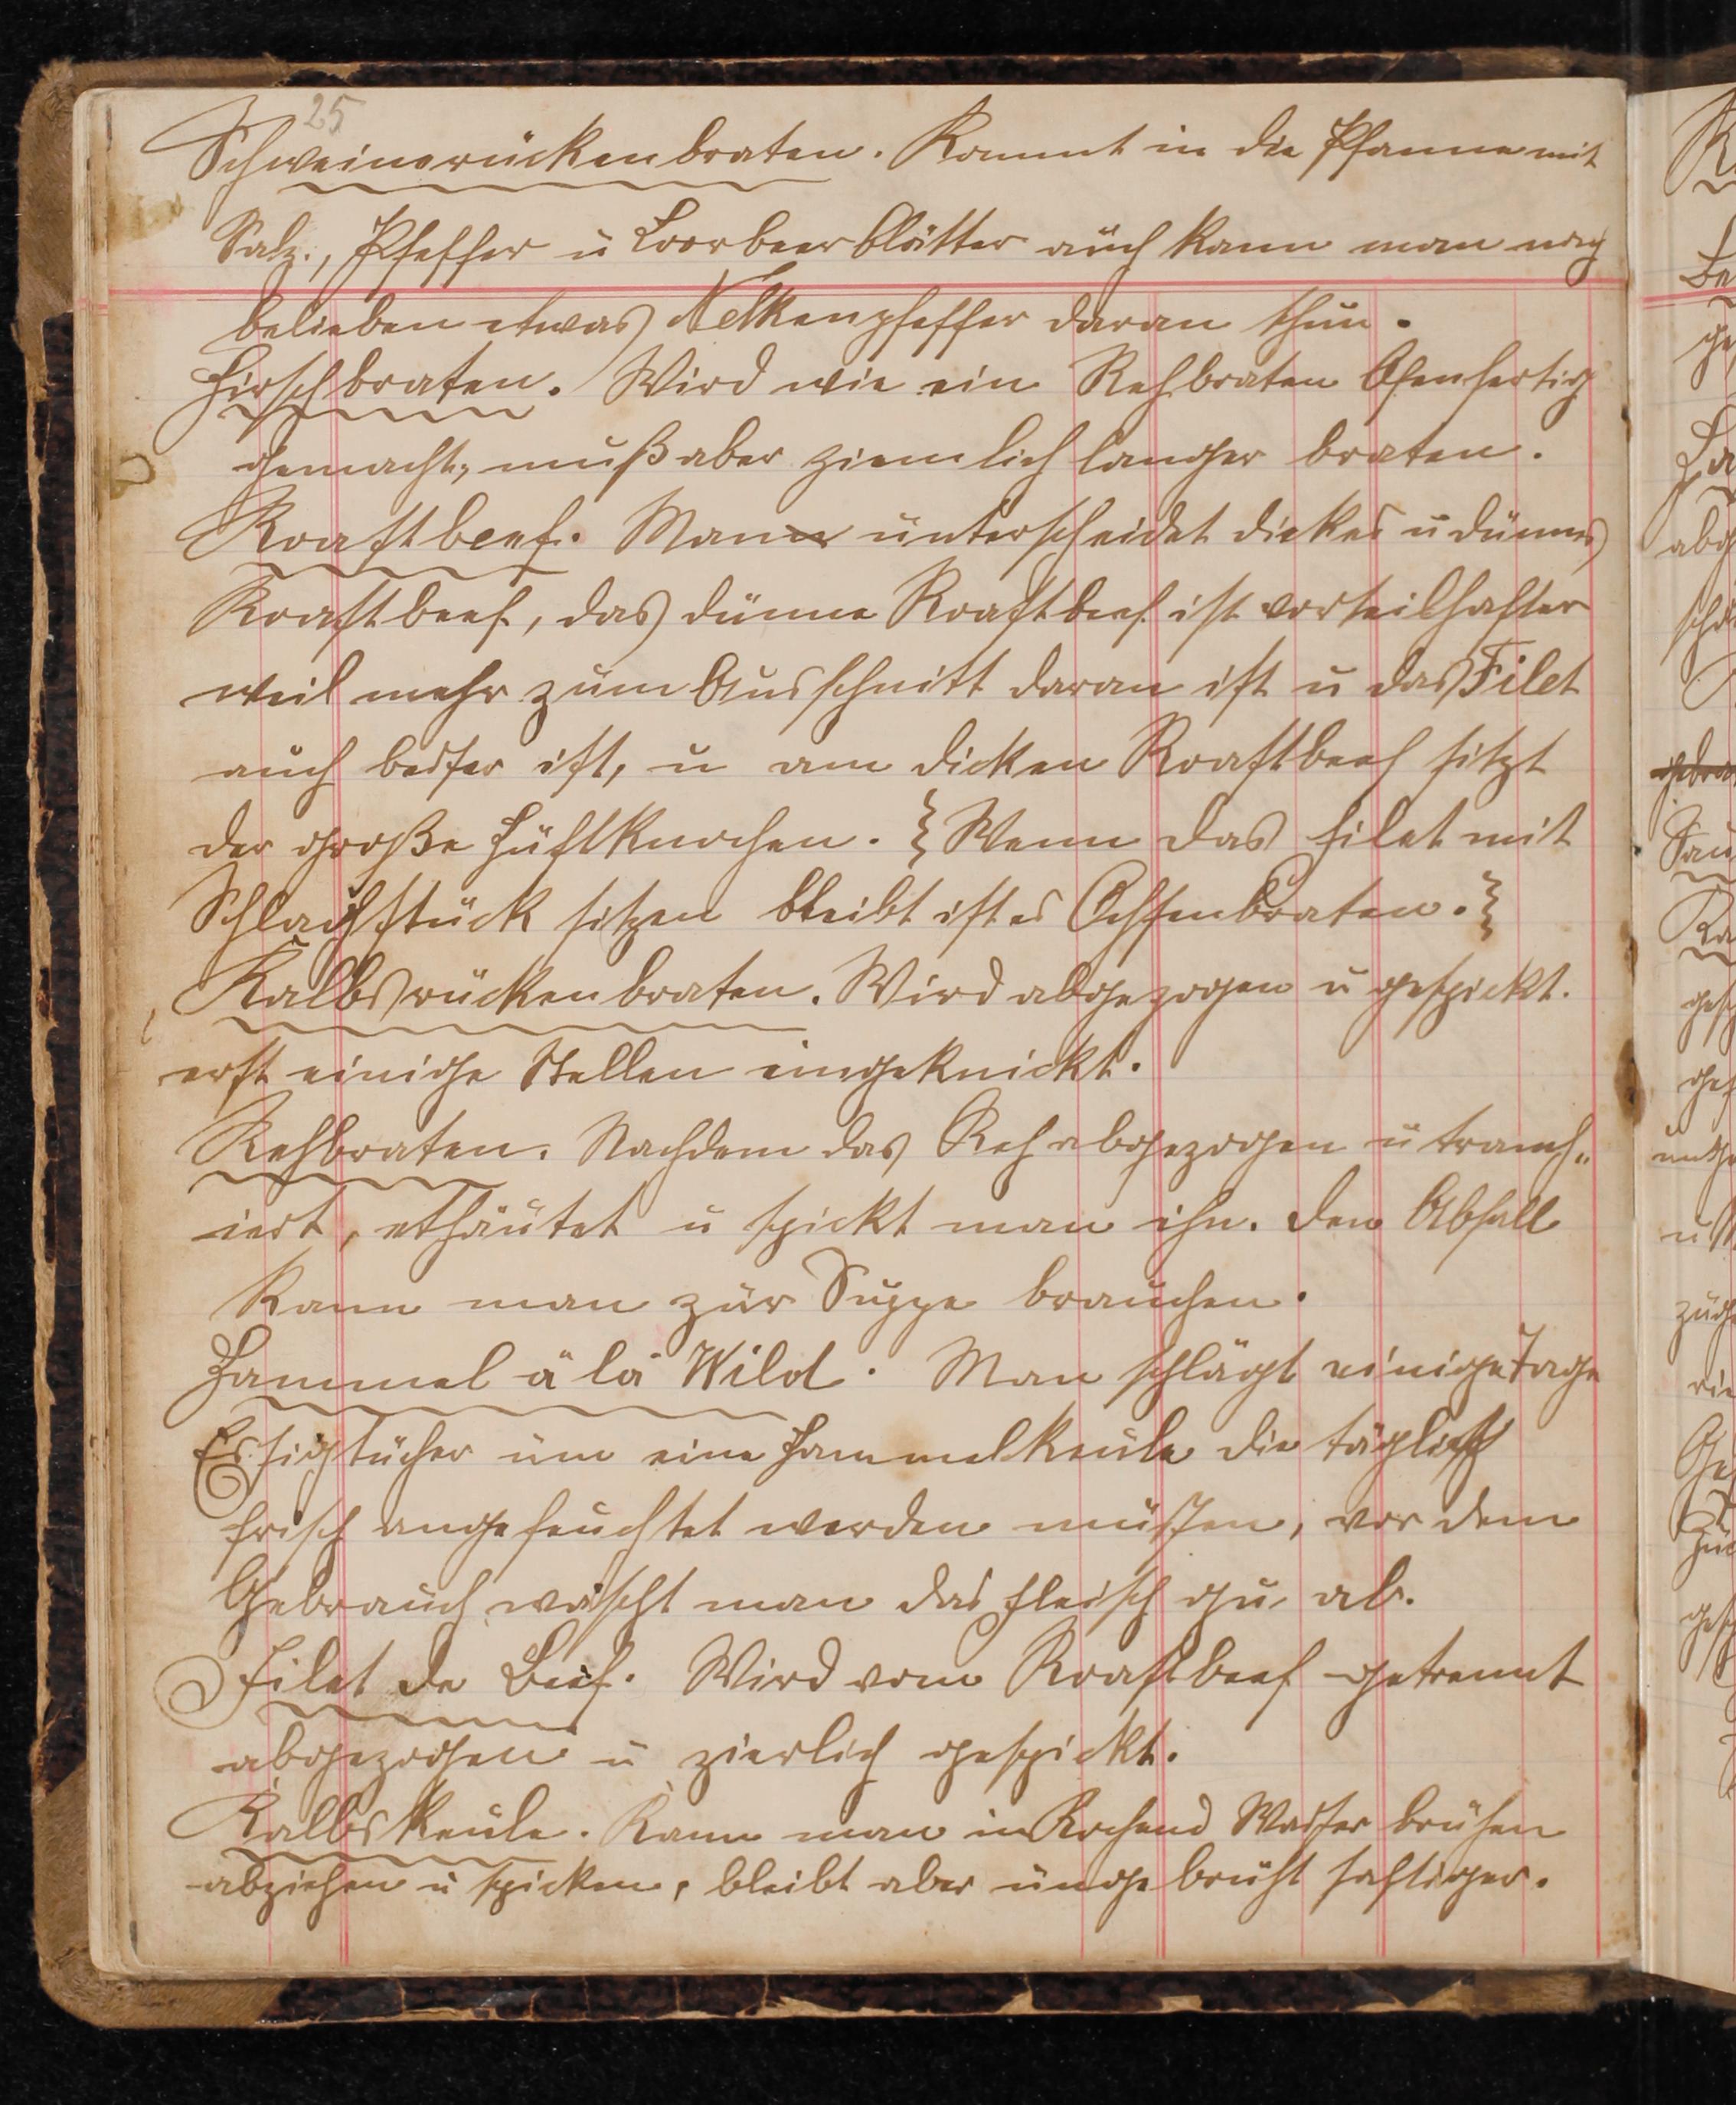 25
Schweinsrückenbraten. Kommt in die Pfanne mit
Salz., Pfeffer u Loorbeerblätter auch kann man nach
belieben etwas Nelkenpfeffer daran thun.
Hirschbraten. Wird wie ein Rehbraten Ofenfertig
gemacht, muß aber ziemlich langer braten.
Roastbeef. Man unterscheidet dickes u dünnes
Roastbeef, das dünne Roastbeef ist vorteilhafter
weil mehr zum Ausschnitt daran ist u das Filet
auch besser ist, u am dicken Roastbeef sitzt
der große Hüftknochen. { Wenn das Filet mit
Schlachstück sitzen bleibt ist es Ochsenbraten. }
Kalbsrückenbraten. Wird abgezogen u gespickt.
erst einige Stellen eingeknickt.
Rehbraten. Nachdem das Reh abgezogen u tranch„
iert, ethäutet u spickt man ihn. den Abfall
kann man zur Suppe brauchen.
Hammel á la Wild. Man schlägt einige Tage
Essigtücher um eine Hammelkeule die täglich
frisch angefeuchtet werden müssen, vor dem
Gebrauch wäscht man das Fleisch gu ab.
Filet de Beef. Wird vom Roastbeef getrennt
abgezogen u zierlich gespickt.
Kalbskeule. Kann man in Kochend Wasser brühen
abziehen u spicken, bleibt aber ungebrüht saftiger.